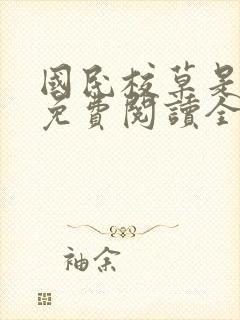 國民校草是
免費閱讀全
袖余